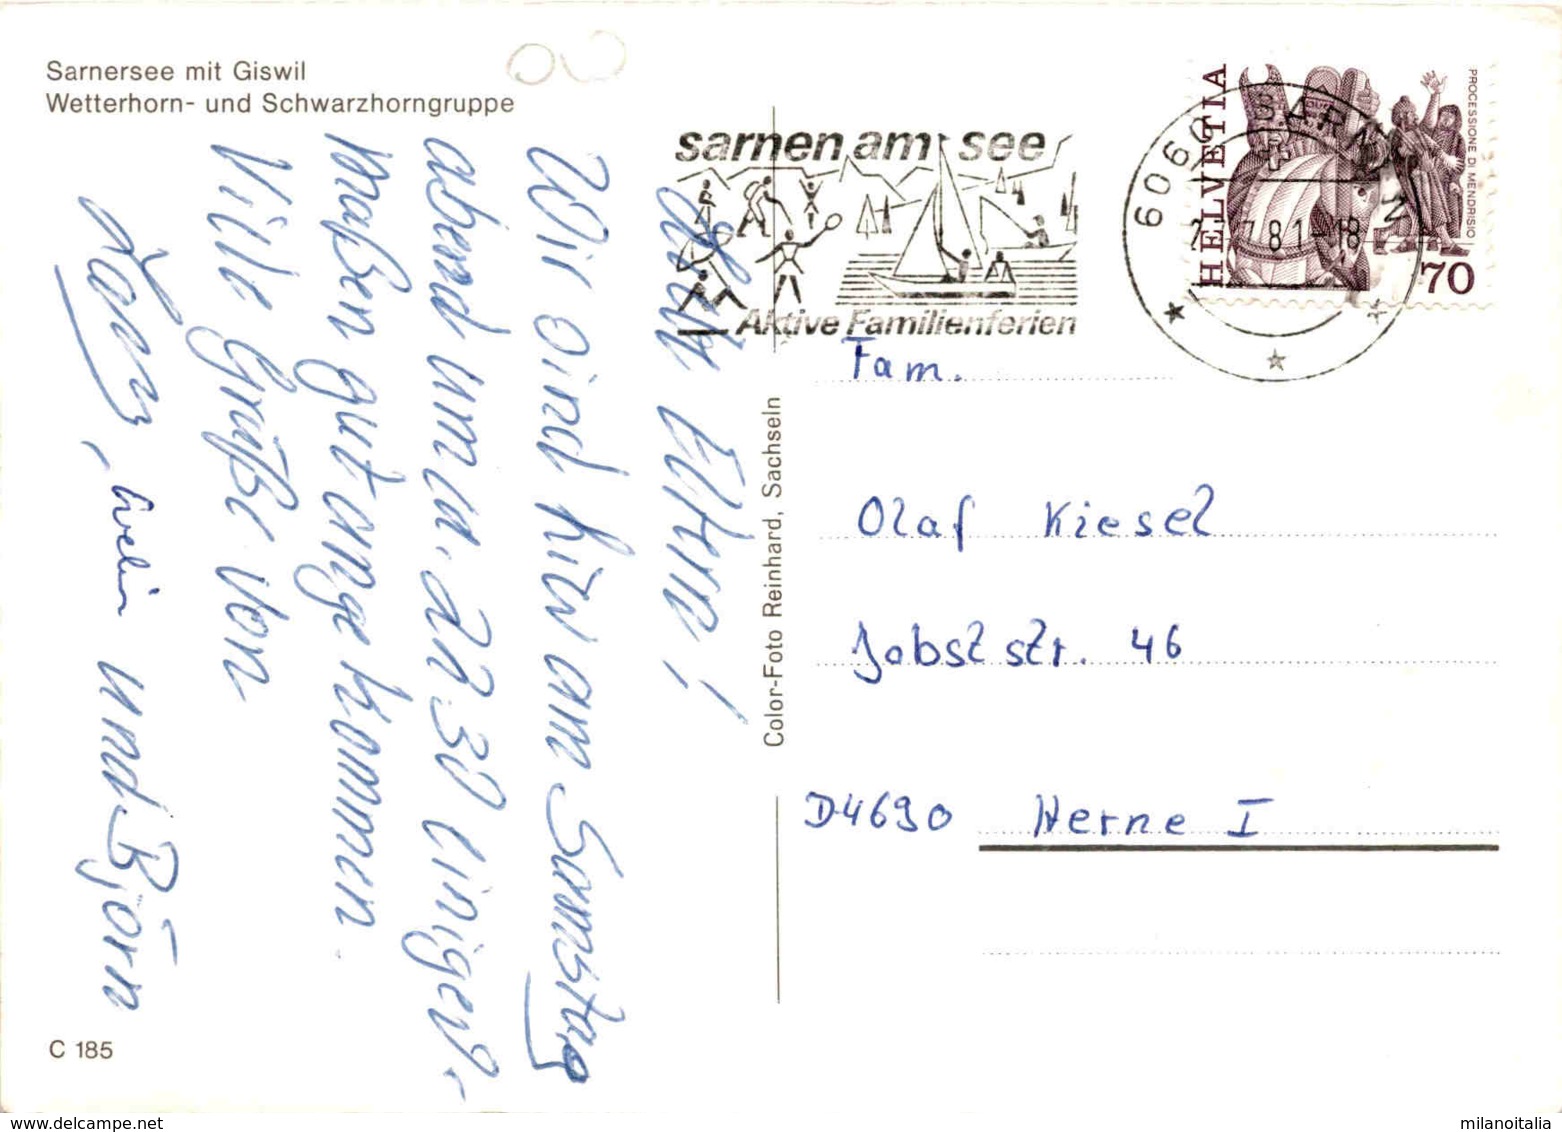 Sarnersee mit Giswil
Wetterhorn- und Schwarzhorngruppe
sarnen am see
Aktive Familienferien
6060 SARNEN
7.81-18
HELVETIA
PROCESSIONE DI MENDRISIO
70
Eltern!
Wir sind hier am Samstag
abend um ca. 22.30 einiger-
maßen gut angekommen.
Viele Grüße von
und Björn
Color-Foto Reinhard, Sachseln
Fam.
Olaf Kiesel
Jobststr. 46
D4690 Herne I
C 185
www.delcampe.net
milanoitalia